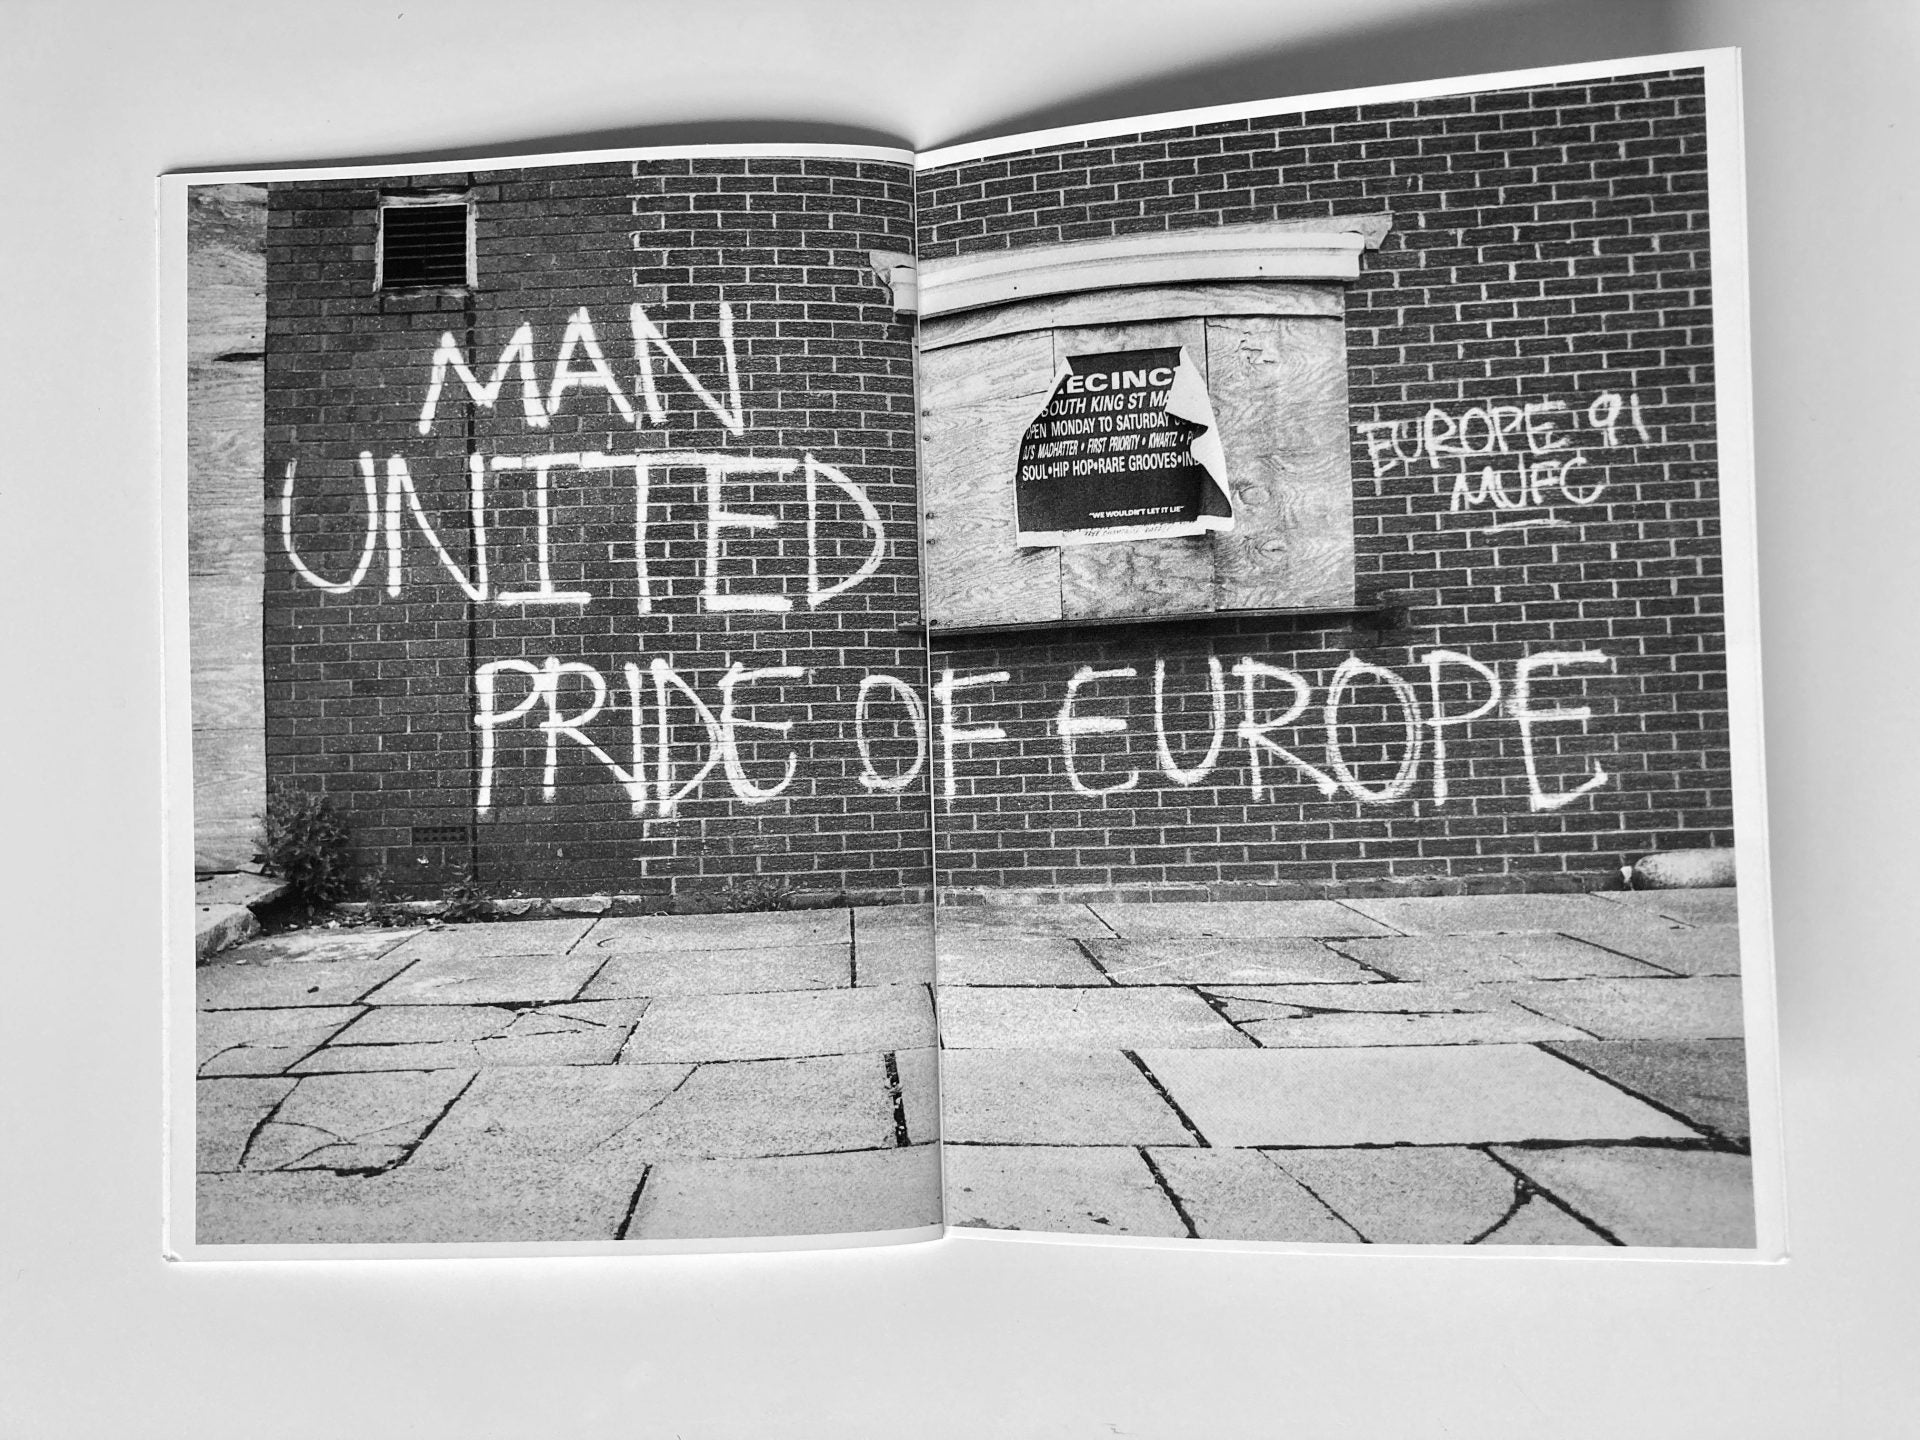 MAN
UNITED
PRIDE OF EUROPE
ECINC
SOUTH KING ST MA
OPEN MONDAY TO SATURDAY
DJ'S MADHATTER • FIRST PRIORITY • KWARTZ •
SOUL•HIP HOP•RARE GROOVES•IN
"WE WOULDN'T LET IT LIE"
EUROPE 91
MUFC